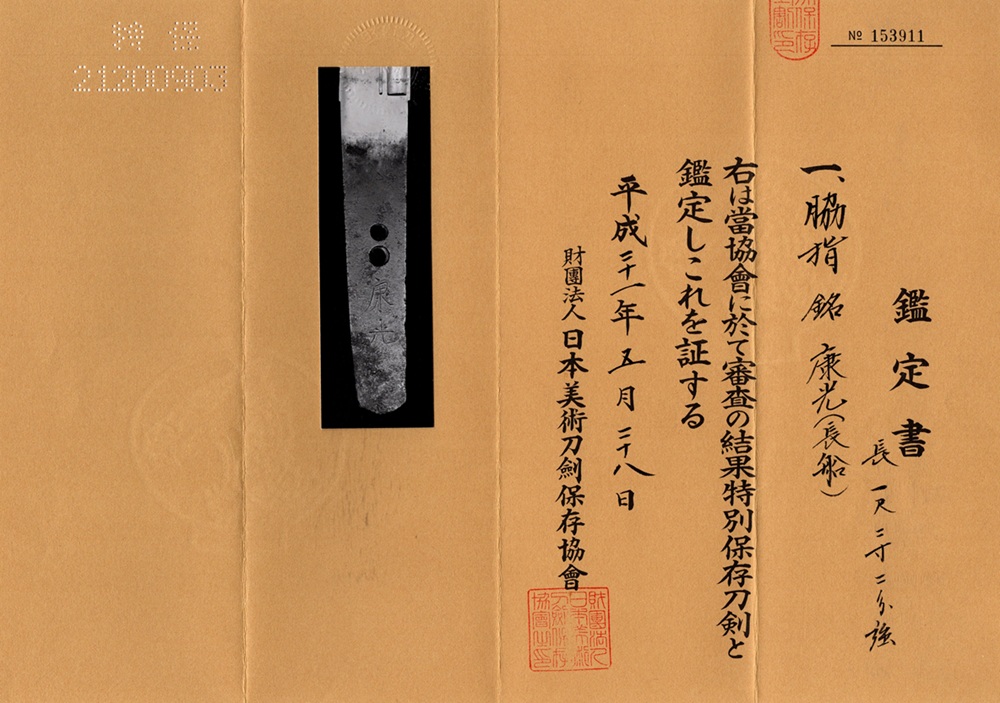 № 153911
鑑定書
一、脇指 銘 康光(長船)
長一尺二寸二分強
右は當協會に於て審査の結果特別保存刀剣と
鑑定しこれを証する
平成二十一年五月二十八日
財團法人日本美術刀劍保存協會
康光
特保
21200903